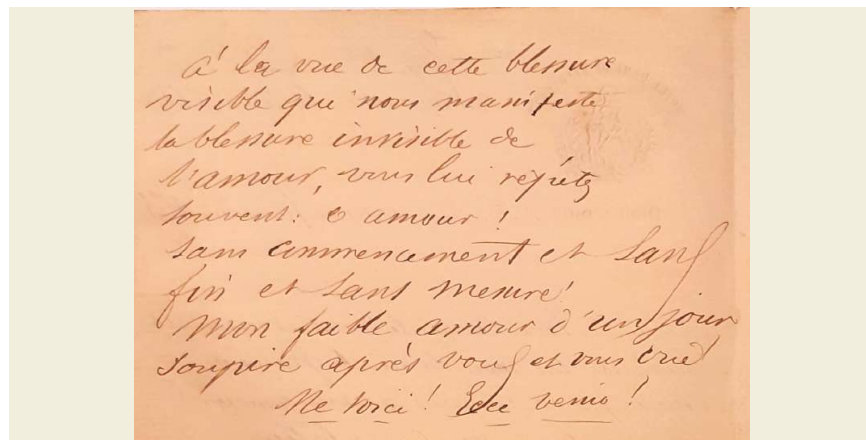 à la vue de cette blessure
visible que nous manifeste
la blessure invisible de
l'amour, vous lui répétez
souvent: o amour !
sans commencement et sans
fin et sans mesure!
Mon faible amour d'un jour
soupire après vous et vous crie!
Me voici ! Ecce venio !